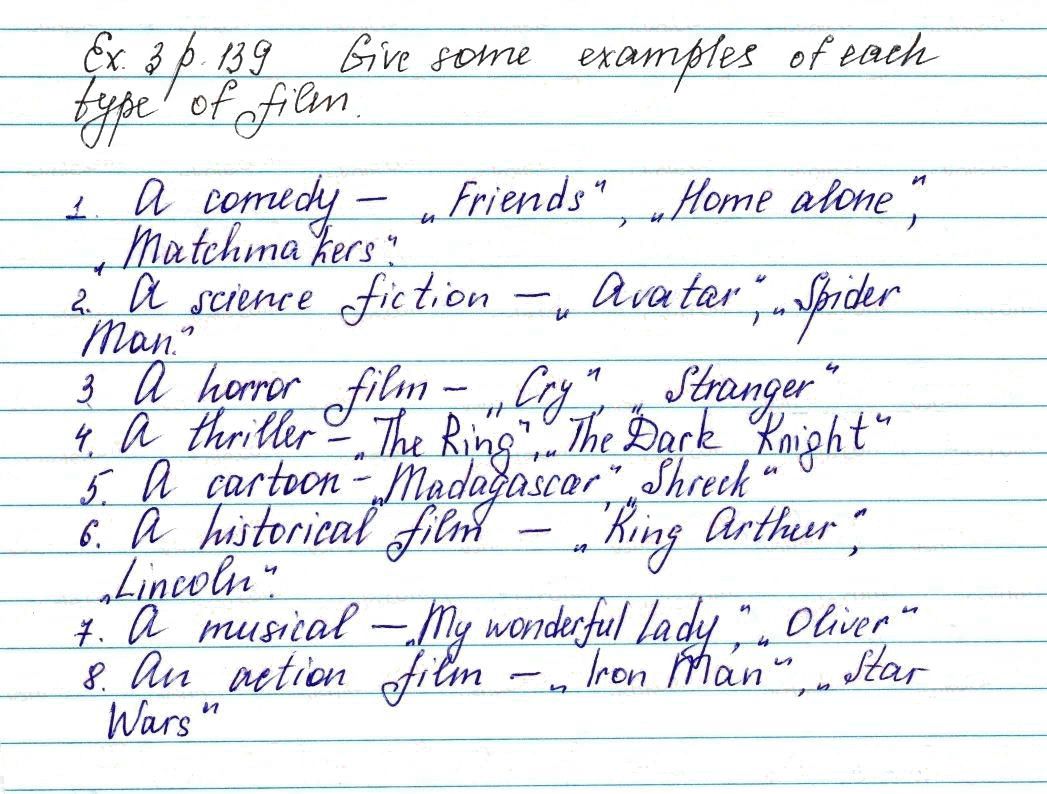 Ex. 3 p. 139 Give some examples of each
type of film.
1. A comedy – „Friends“, „Home alone“,
„Matchmakers“.
2. A science fiction – „Avatar“, „Spider
Man“.
3 A horror film – „Cry“, „Stranger“
4. A thriller – „The Ring“, „The Dark Knight“
5. A cartoon – „Madagascar“, „Shreck“
6. A historical film – „King Arthur“,
„Lincoln“.
7. A musical – „My wonderful lady“, „Oliver“
8. An action film – „Iron Man“, „Star
Wars“